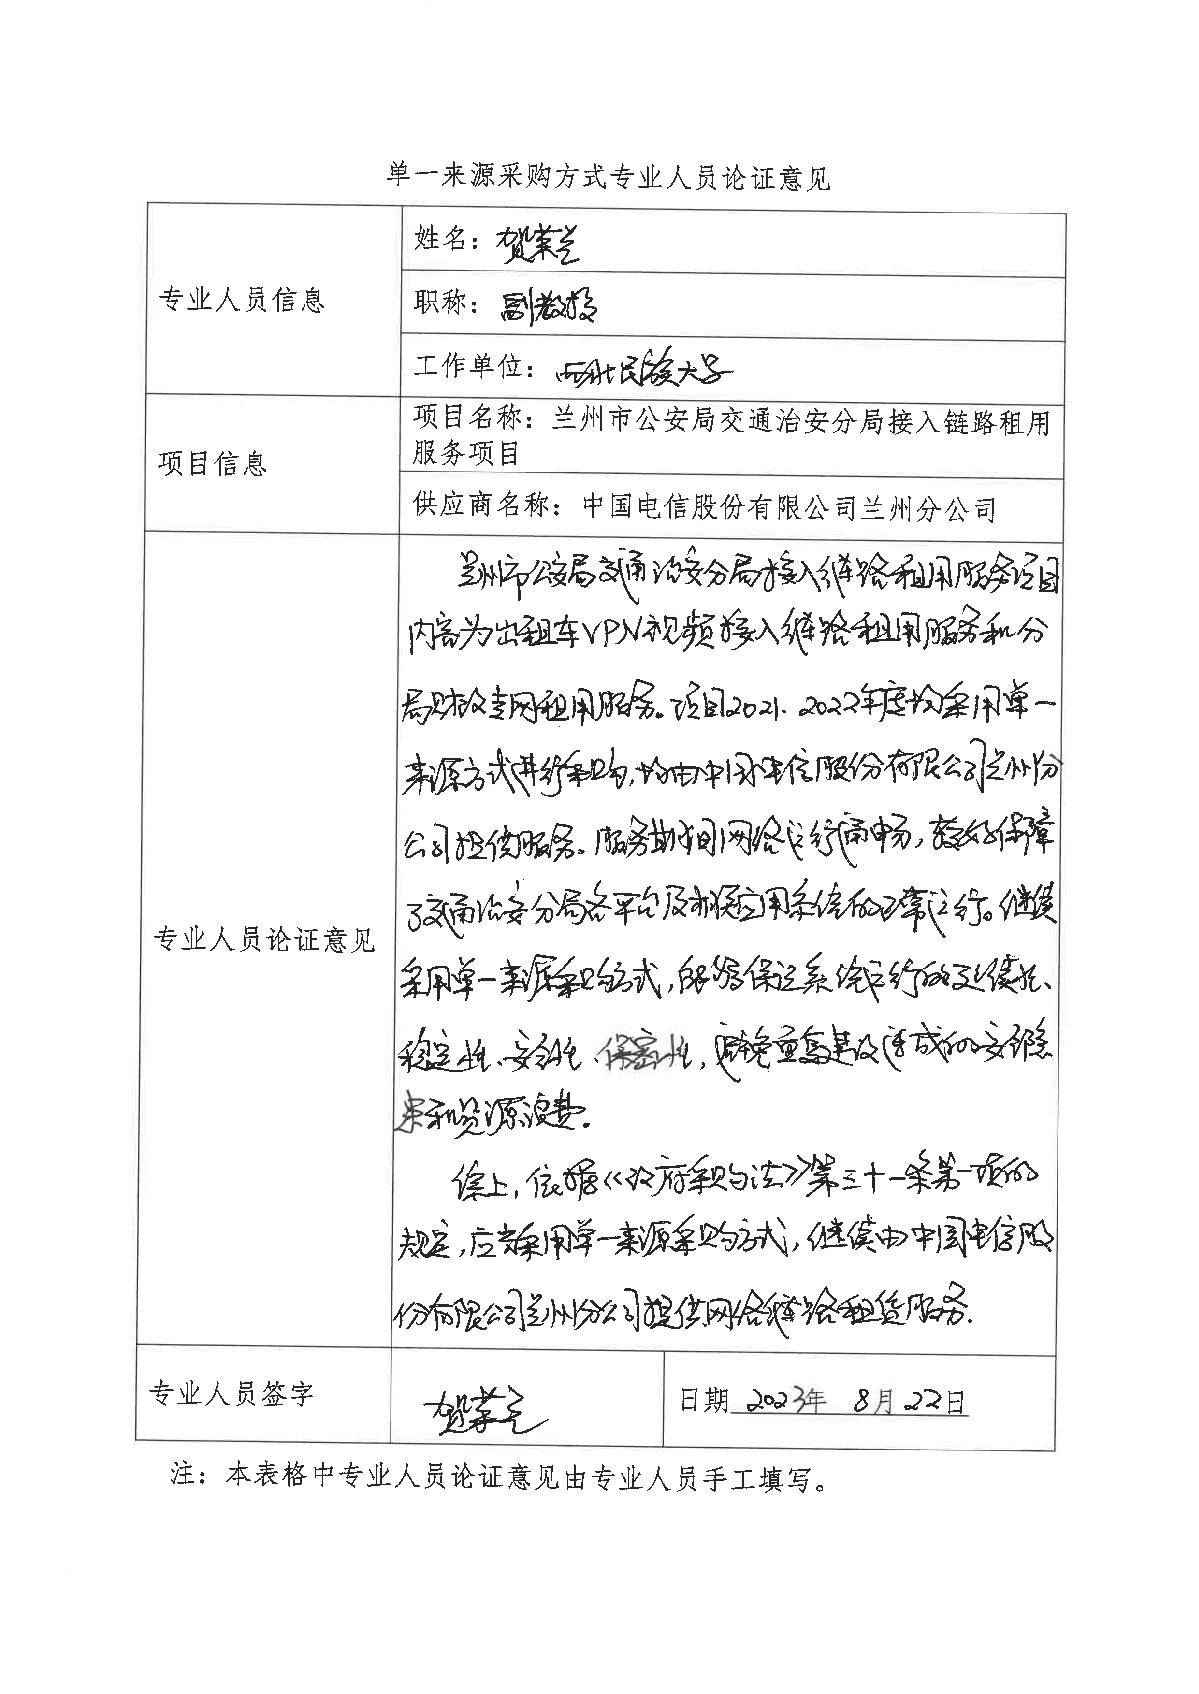 单一来源采购方式专业人员论证意见
专业人员信息
姓名：贺荣兰
职称：副教授
工作单位：西北民族大学
项目信息
项目名称：兰州市公安局交通治安分局接入链路租用
服务项目
供应商名称：中国电信股份有限公司兰州分公司
专业人员论证意见
兰州市公安局交通治安分局接入链路租用服务项目
内容为出租车VPN视频接入链路租用服务和分
局财政专网租用服务。项目2021、2022年度均采用单一
来源方式进行采购，均由中国电信股份有限公司兰州份
公司提供服务。服务期间网络运行通畅，较好保障
了交通治安分局各平台及视频应用系统的正常运行。继续
采用单一来源采购方式，能够保证系统运行的延续性、
稳定性、安全性、保密性，避免重复建设造成的安全隐
患和资源浪费。
综上，依据《政府采购法》第三十一条第一项的
规定，应当采用单一来源采购方式，继续由中国电信股
份有限公司兰州分公司提供网络链路租赁服务.
专业人员签字
贺荣兰
日期 2023年 8月 22日
注：本表格中专业人员论证意见由专业人员手工填写。